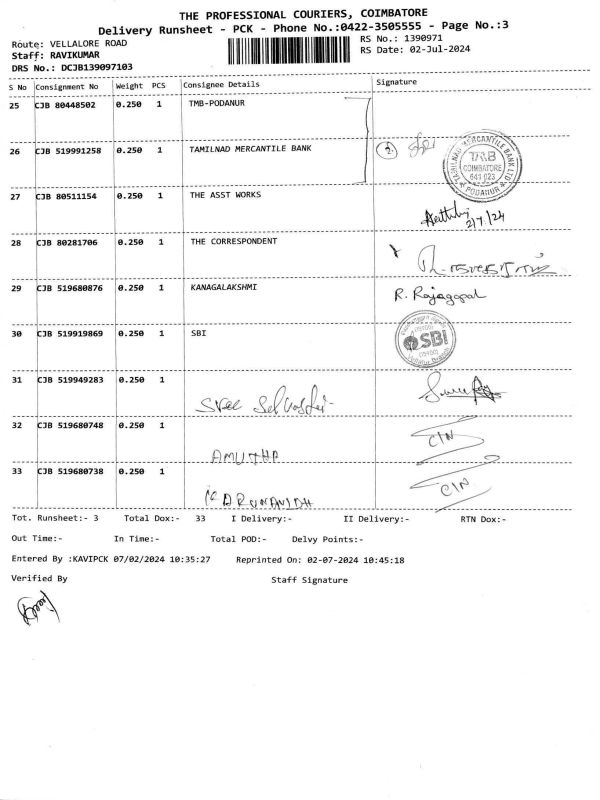 THE PROFESSIONAL COURIERS, COIMBATORE
Delivery Runsheet - PCK - Phone No.:0422-3505555 - Page No.:3
Route: VELLALORE ROAD
RS No.: 1390971
Staff: RAVIKUMAR
RS Date: 02-Jul-2024
DRS No.: DCJB139097103
S No Consignment No Weight PCS Consignee Details Signature
25 CJB 80448502 0.250 1 TMB-PODANUR
26 CJB 519991258 0.250 1 TAMILNAD MERCANTILE BANK
TAMILNAD MERCANTILE BANK LTD
TMB
COIMBATORE
641 023
PODANUR
27 CJB 80511154 0.250 1 THE ASST WORKS
2/7/24
28 CJB 80281706 0.250 1 THE CORRESPONDENT
29 CJB 519680876 0.250 1 KANAGALAKSHMI R. Rajagopal
30 CJB 519919869 0.250 1 SBI
SBI
31 CJB 519949283 0.250 1
Sree
32 CJB 519680748 0.250 1 CIN
AMUTHA
33 CJB 519680738 0.250 1 CIN
Tot. Runsheet:- 3 Total Dox:- 33 I Delivery:- II Delivery:- RTN Dox:-
Out Time:- In Time:- Total POD:- Delvy Points:-
Entered By :KAVIPCK 07/02/2024 10:35:27 Reprinted On: 02-07-2024 10:45:18
Verified By Staff Signature